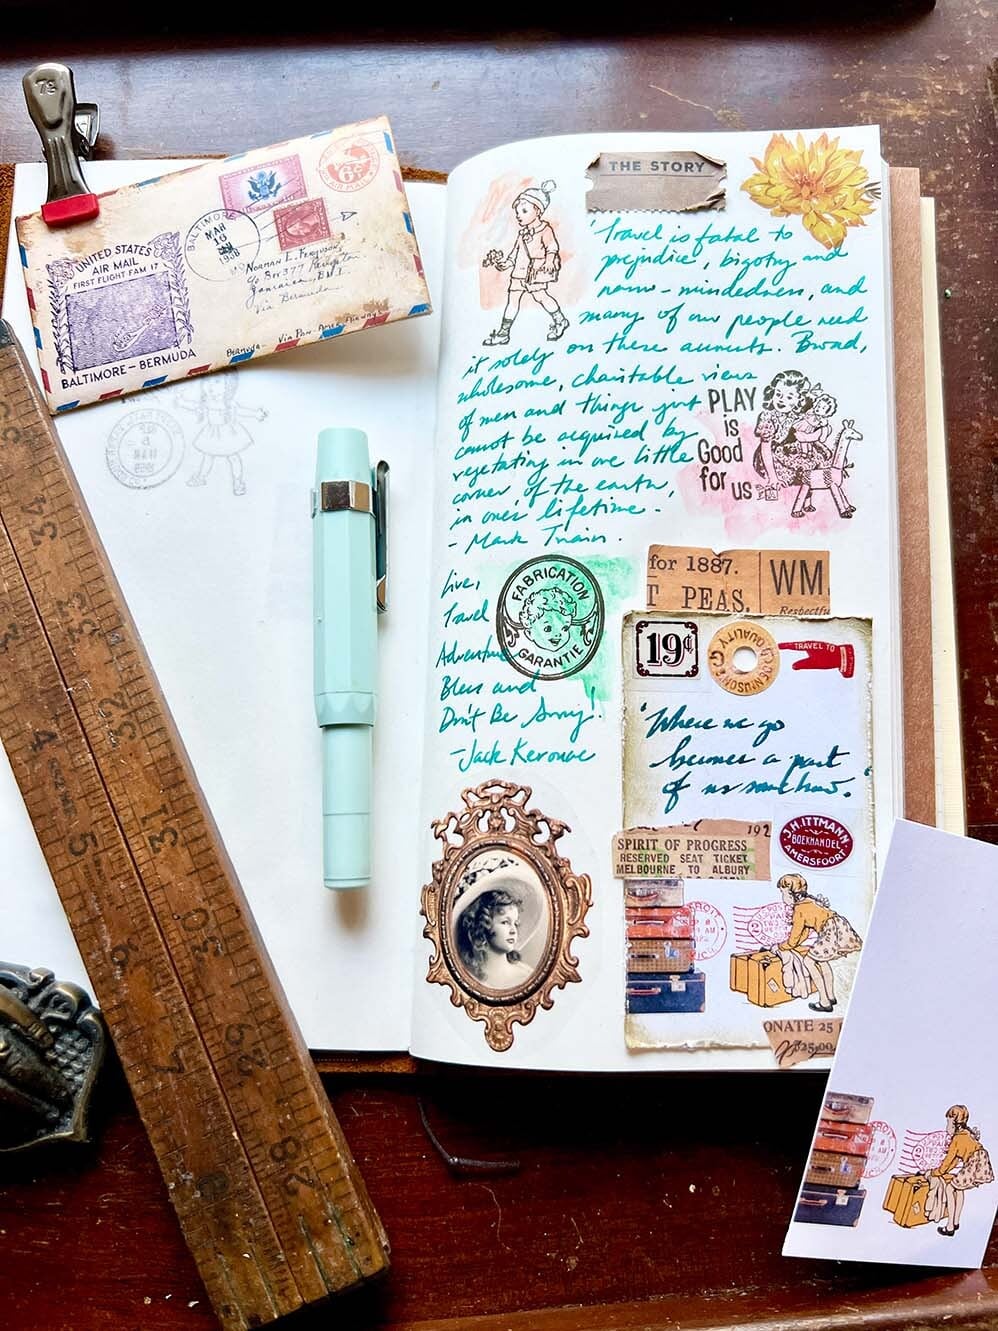 73
UNITED STATES
AIR MAIL
FIRST FLIGHT FAM 17
BALTIMORE-BERMUDA
BALTIMORE
MAR
AIR MAIL
6¢
Norman E. Ferguson,
Box 377
Jamaica, B.W.I.
Via Bermuda
Bermuda - Via Pan Amer. Airways
THE STORY
"Travel is fatal to
prejudice, bigotry and
narrow-mindedness, and
many of our people need
it solely on these accounts. Broad,
wholesome, charitable views
of men and things just
cannot be acquired by
vegetating in one little
corner of the earth,
in ones lifetime.
- Mark Twain.
PLAY
is
Good
for us
Live,
Travel
Adventure
Bless and
Don't Be Sorry!
-Jack Kerouac
FABRICATION
GARANTIE
for 1887.
T PEAS.
WM
Respectfu
19¢
QUALITY
TRAVEL TO
"Where we go
becomes a part
of us somehow."
192
SPIRIT OF PROGRESS
RESERVED SEAT TICKET
MELBOURNE TO ALBURY
J.H. ITTMANN
BOEKHANDEL
AMERSFOORT
ONATE 25
$25,00
34
33
32
31
30
29
28